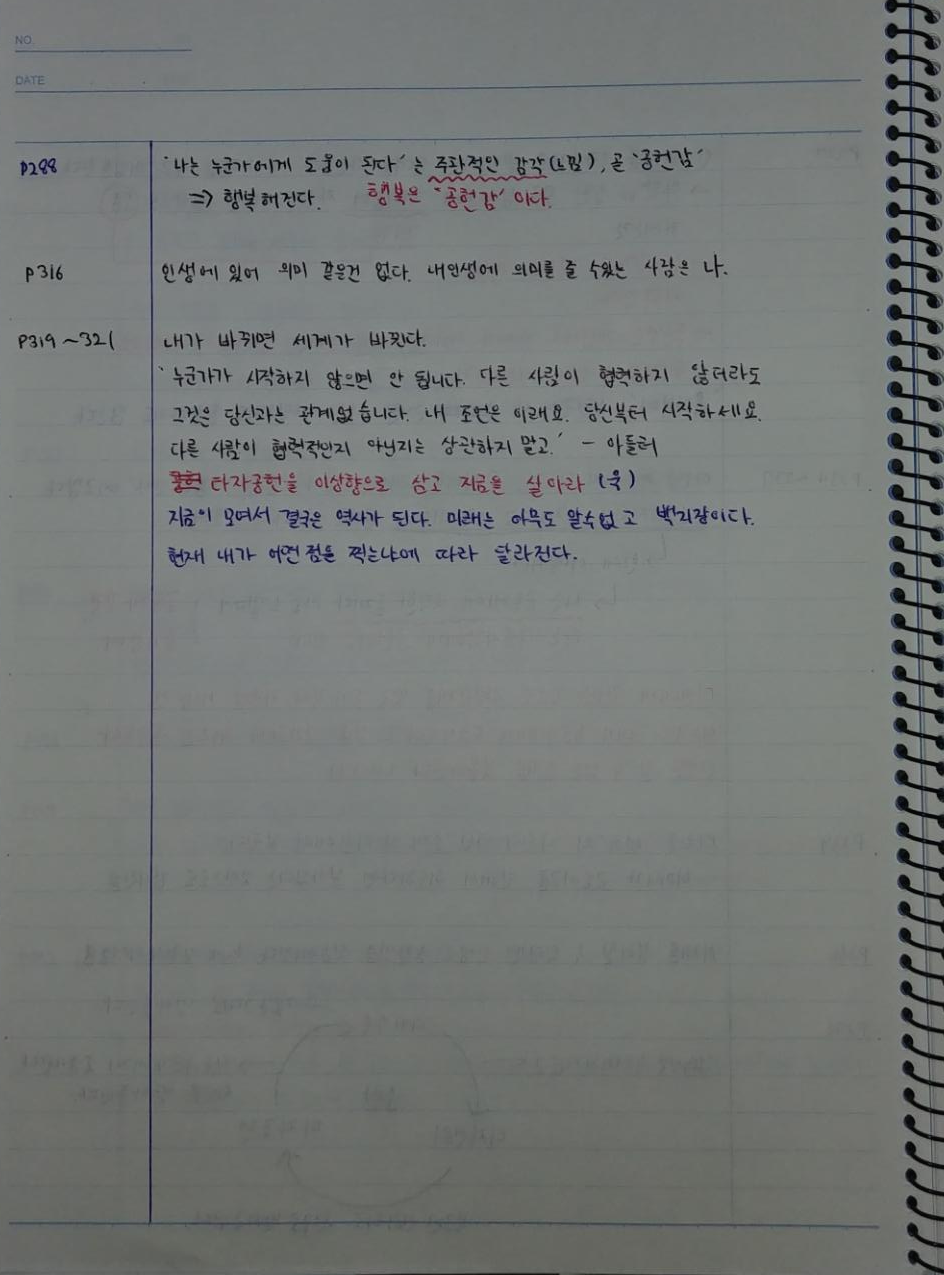 NO.
DATE
P288
'나는 누군가에게 도움이 된다'는 주관적인 감각(느낌), 곧 '공헌감'
=> 행복해진다. 행복은 '공헌감'이다.
P316
인생에 있어 의미 같은건 없다. 내인생에 의미를 줄 수있는 사람은 나.
P319~321
내가 바뀌면 세계가 바뀐다.
'누군가가 시작하지 않으면 안 됩니다. 다른 사람이 협력하지 않더라도
그것은 당신과는 관계없습니다. 내 조언은 이래요. 당신부터 시작하세요.
다른 사람이 협력적인지 아닌지는 상관하지 말고.' - 아들러
타자공헌을 이상향으로 삼고 지금을 살아라
지금이 모여서 결국은 역사가 된다. 미래는 아무도 알수없고 백지장이다.
현재 내가 어떤 점을 찍는냐에 따라 달라진다.